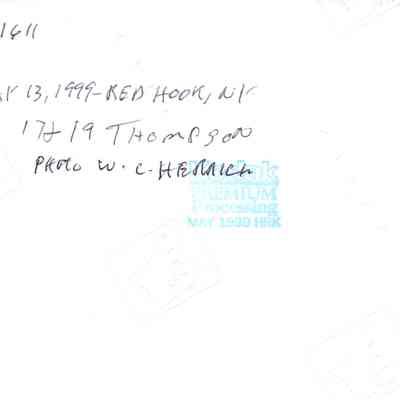 1611
Y 13, 1999-RED HOOK, NY
17 & 19 THOMPSON
PHOTO W. C. HERRICK
Kodak
PREMIUM
Processing
MAY 1999 HRK